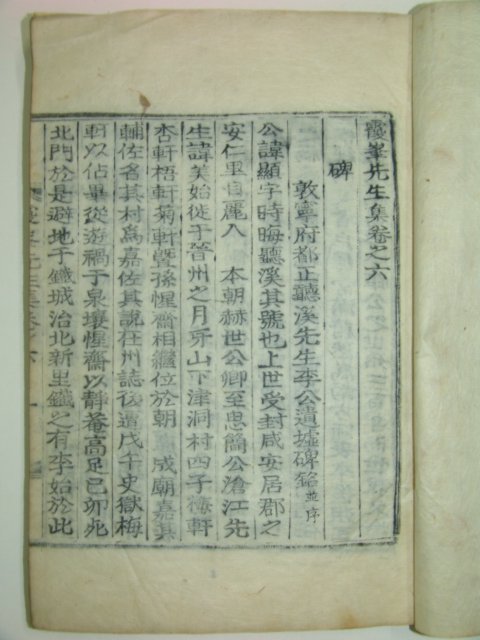 霞峯先生集卷之六
碑
敦寧府都正聽溪先生李公遺墟碑銘 並序
公諱顯字時晦聽溪其號也上世受封咸安居郡之
安仁里自麗入 本朝赫世公卿至思簡公滄江先
生諱美始徙于晉州之月牙山下津洞村四子梅軒
杏軒梧軒菊軒曁孫惺齋相繼位於朝 成廟嘉其
輔佐省其村爲嘉佐其說在州誌後遭戊午史獄梅
軒以佔畢從遊禍于泉壤惺齋以靜菴高足己卯兆
北門於是避地于鐵城治北新里鐵之有李始於此